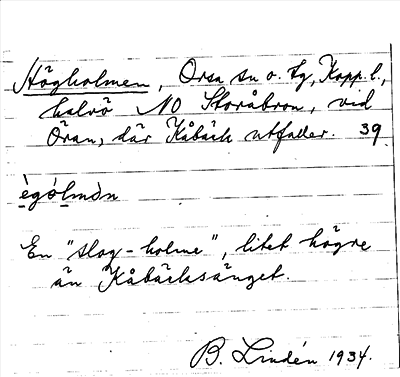 Högholmen, Orsa sn o. tg, Kopp. l.,
halvö NO Storåbron, vid
Öran, där Kåbäck utfaller. 39
ègólmǝn
En "slog-holme", litet högre
än Kåbäcksänget.
B. Lindén 1934.